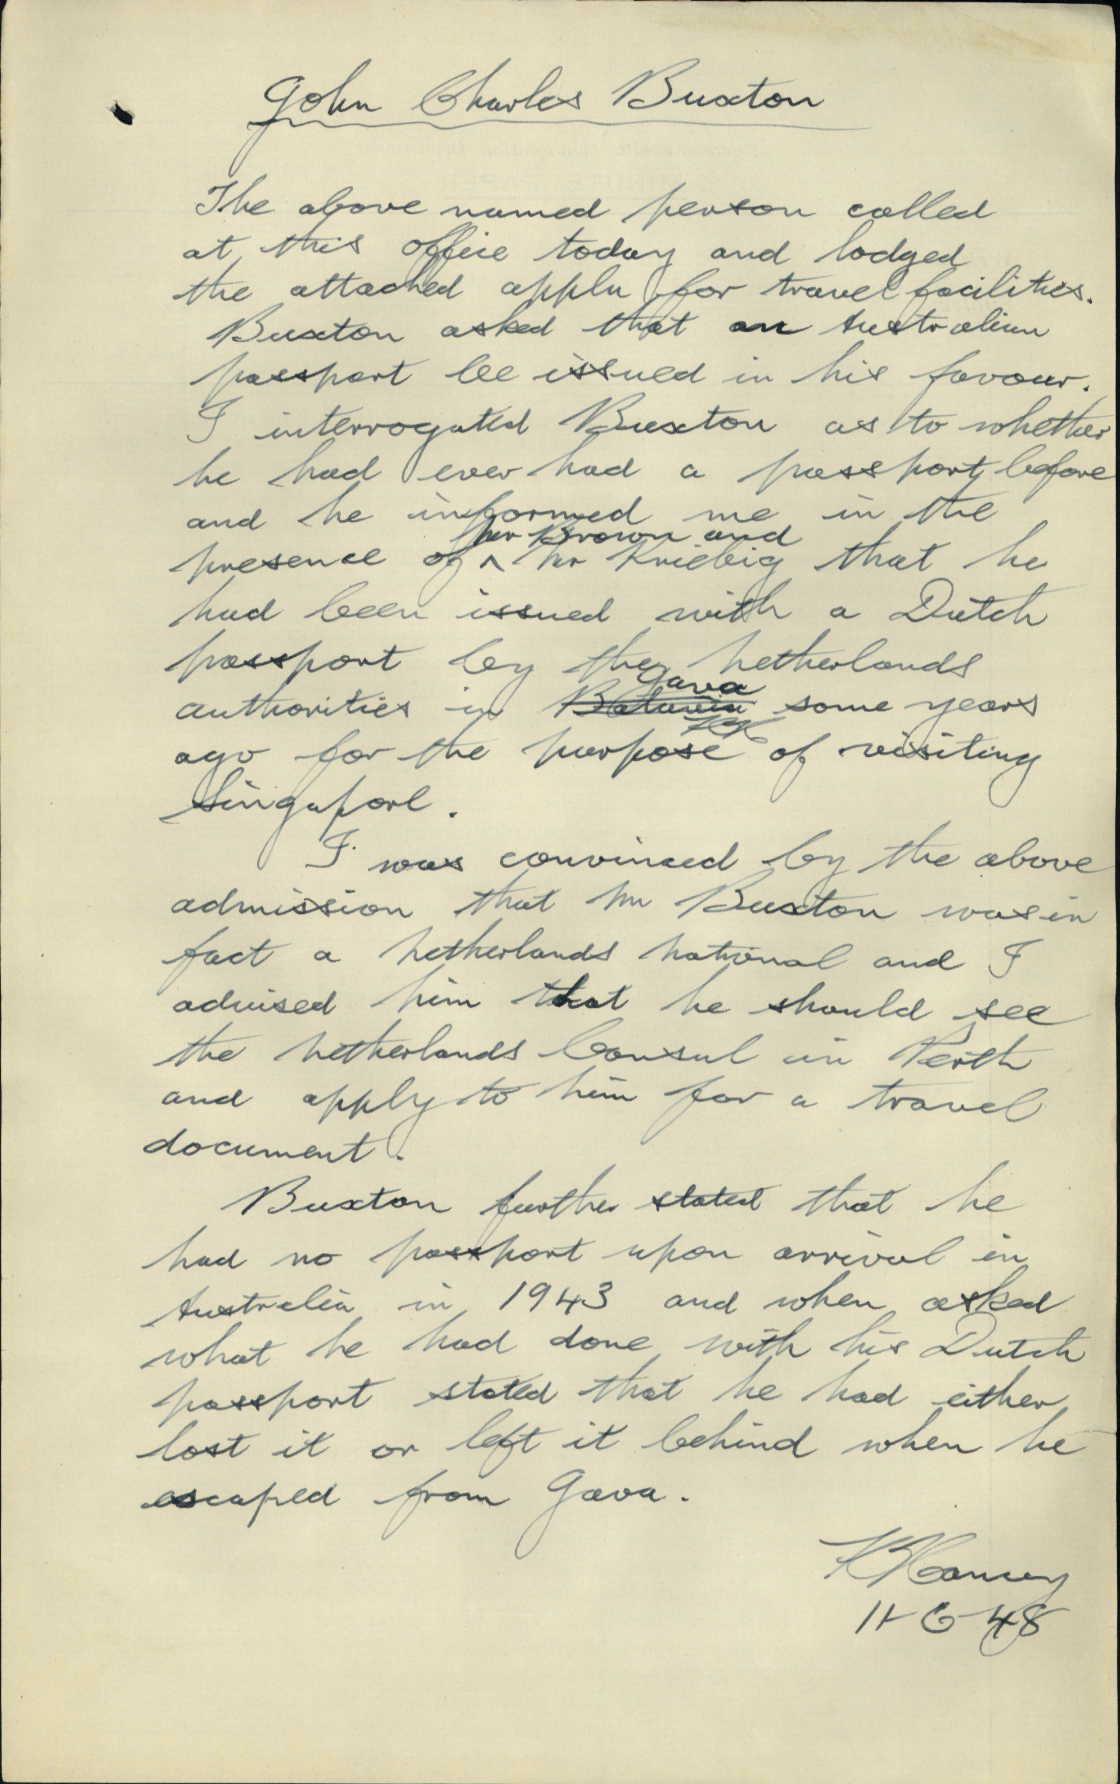 John Charles Buxton
The above named person called
at this office today and lodged
the attached appln for travel facilities.
Buxton asked that an Australian
passport be issued in his favour.
I interrogated Buxton as to whether
he had ever had a passport before
and he informed me in the
Mr Brown and
presence of ^ Mr Kriebig that he
had been issued with a Dutch
passport by the Netherlands
Java
authorities in Batavia some years
ago for the purpose of visiting
Singapore.
I was convinced by the above
admission that Mr Buxton was in
fact a Netherlands National and I
advised him that he should see
the Netherlands Consul in Perth
and apply to him for a travel
document.
Buxton further stated that he
had no passport upon arrival in
Australia in 1943 and when asked
what he had done with his Dutch
passport stated that he had either
lost it or left it behind when he
escaped from Java.
11-6-48